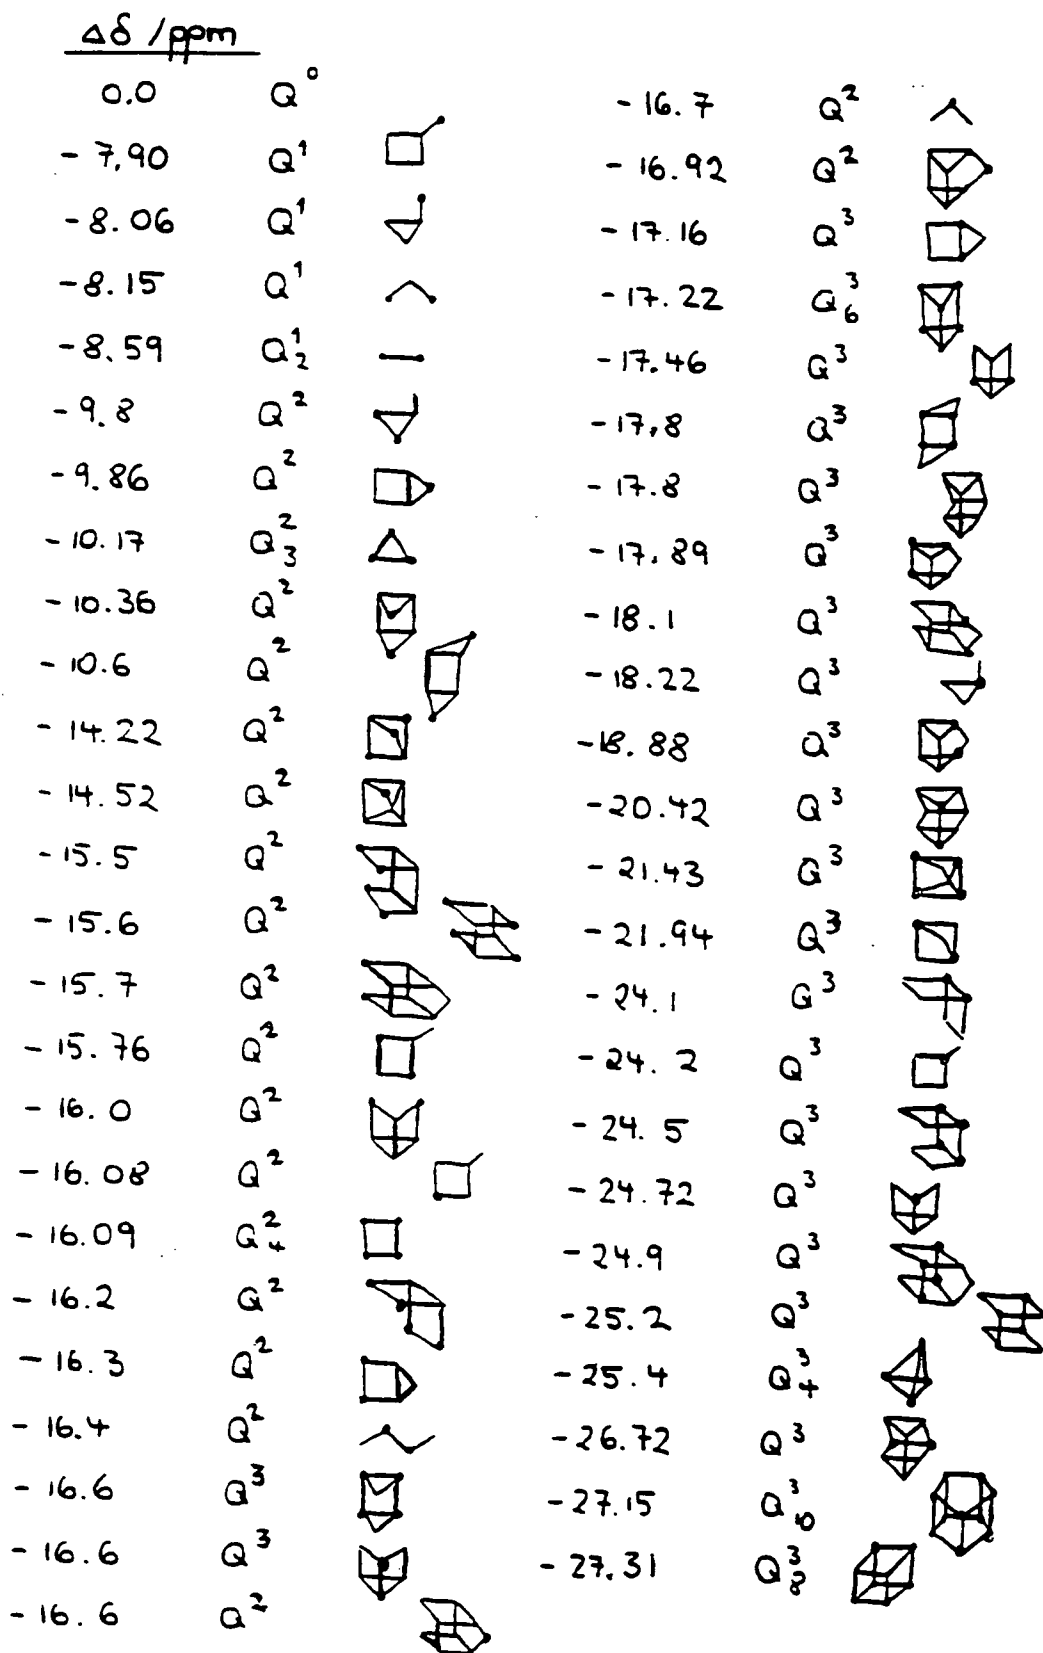 Δδ /ppm
0.0 Q⁰
- 7.90 Q¹
-8.06 Q¹
-8.15 Q¹
-8.59 Q¹₂
-9.8 Q²
-9.86 Q²
-10.17 Q²₃
-10.36 Q²
-10.6 Q²
-14.22 Q²
-14.52 Q²
-15.5 Q²
-15.6 Q²
-15.7 Q²
-15.76 Q²
-16.0 Q²
-16.08 Q²
-16.09 Q²₄
-16.2 Q²
-16.3 Q²
-16.4 Q²
-16.6 Q³
-16.6 Q³
-16.6 Q²
-16.7 Q²
-16.92 Q²
-17.16 Q³
-17.22 Q³₆
-17.46 Q³
-17.8 Q³
-17.8 Q³
-17.89 Q³
-18.1 Q³
-18.22 Q³
-18.88 Q³
-20.42 Q³
-21.43 Q³
-21.94 Q³
-24.1 Q³
-24.2 Q³
-24.5 Q³
-24.72 Q³
-24.9 Q³
-25.2 Q³
-25.4 Q³₄
-26.72 Q³
-27.15 Q³₁₀
-27.31 Q³₈